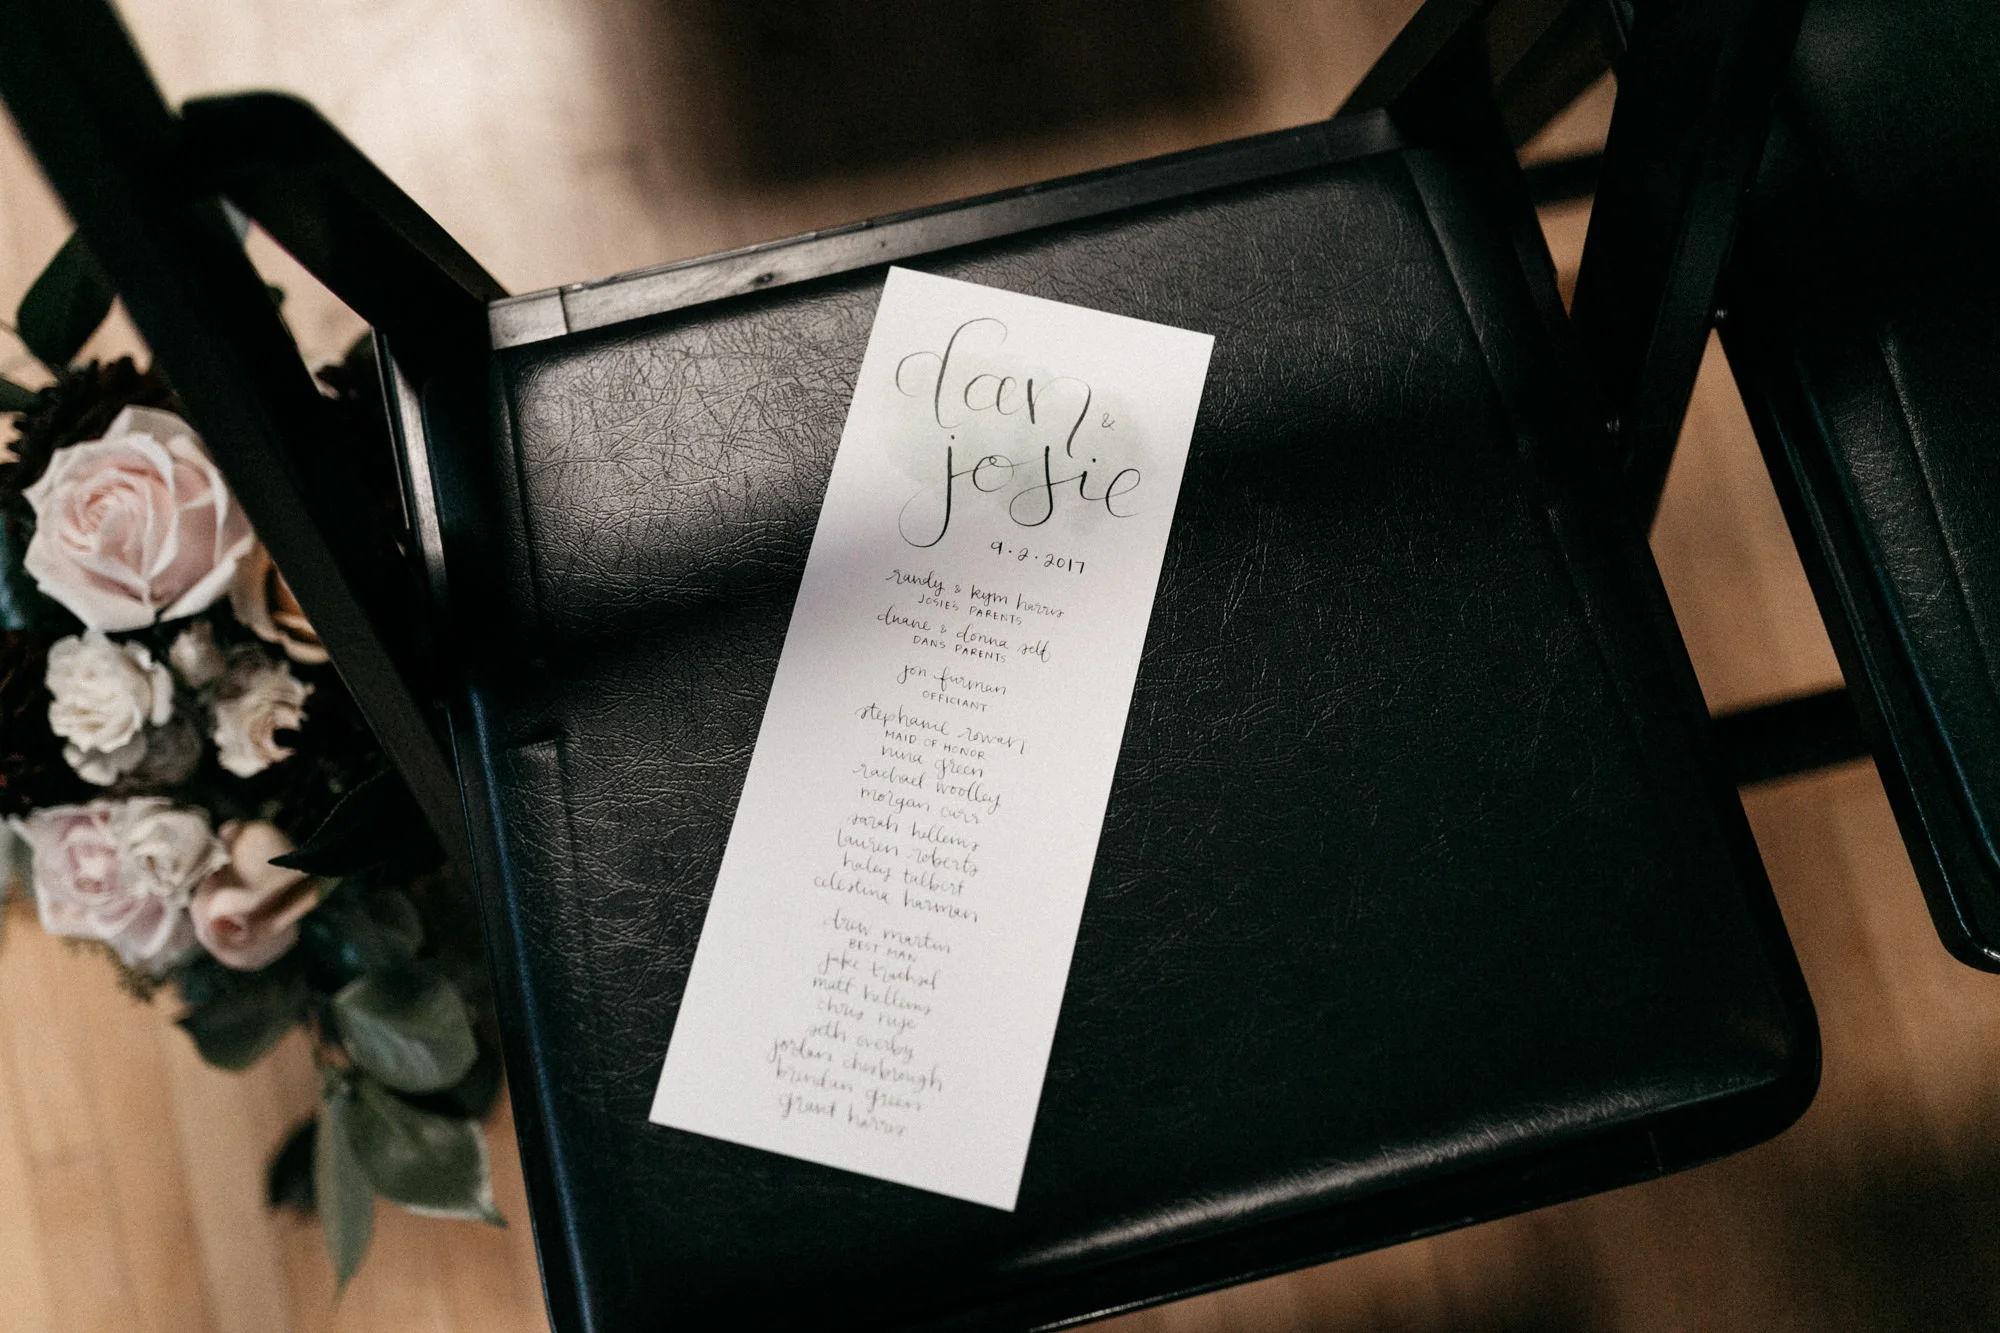 dan &
josie
9·2·2017
randy & kym harris
JOSIE'S PARENTS
duane & donna self
DAN'S PARENTS
jon furman
OFFICIANT
stephanie rowan
MAID OF HONOR
nina green
rachael woolley
morgan carr
sarah hellems
lauren roberts
haley talbert
celestina harman
drew martin
BEST MAN
jake trachsel
matt hellems
chris nye
seth overby
jordan
brendan green
grant harris